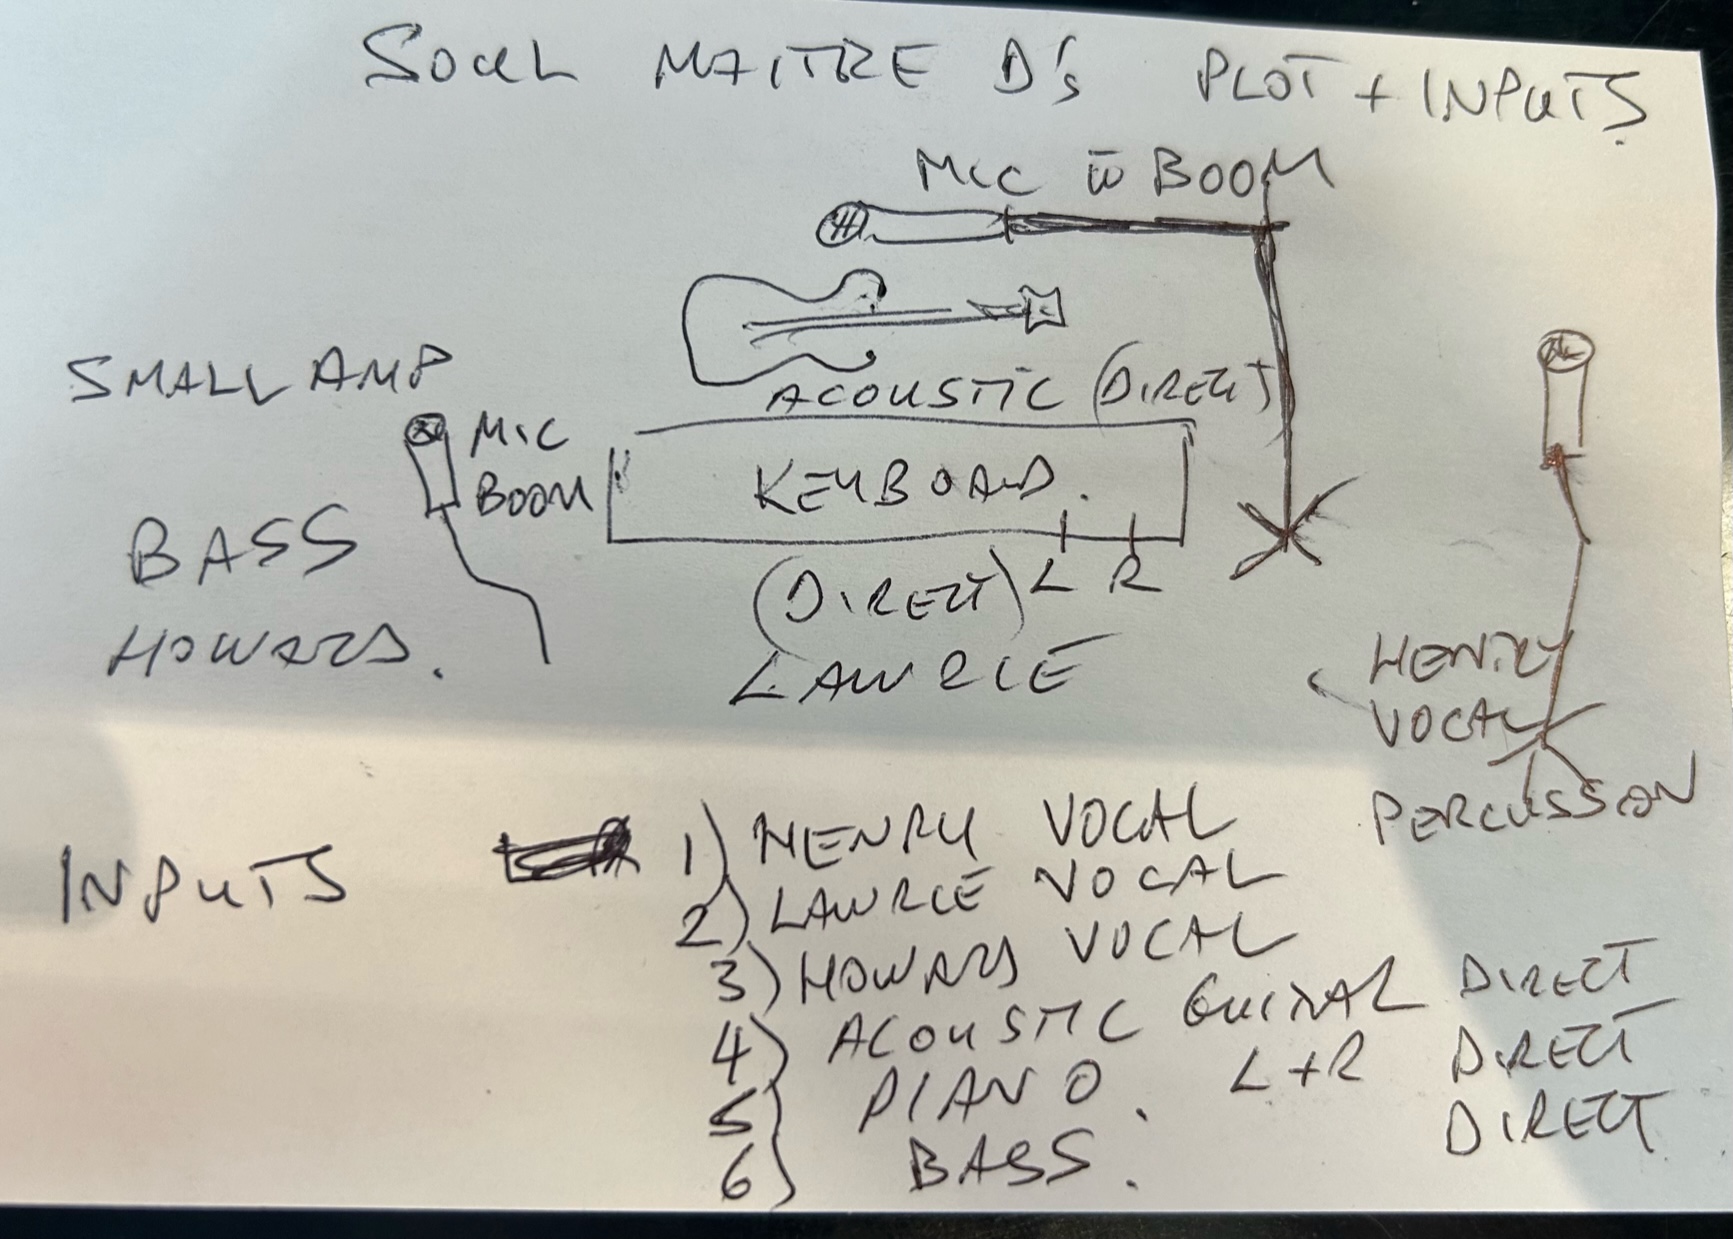 SOUL MAITRE D's PLOT + INPUTS
MIC w̄ BOOM
ACOUSTIC (DIRECT)
SMALL AMP
MIC
BOOM
KEYBOARD.
BASS
(DIRECT) L R
HOWARD.
LAWRIE
HENRY
VOCAL
PERCUSSION
INPUTS
1) HENRY VOCAL
2) LAWRIE VOCAL
3) HOWARD VOCAL
4) ACOUSTIC GUITAR DIRECT
5) PIANO. L+R DIRECT
6) BASS. DIRECT